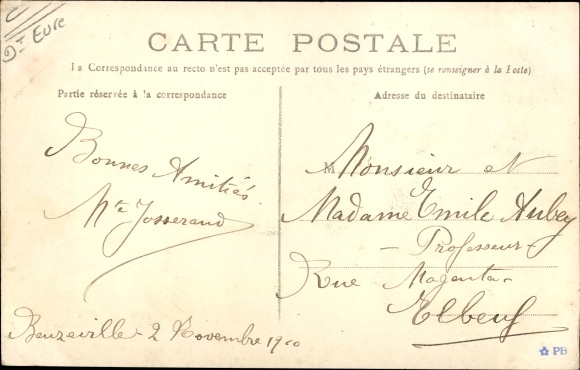 Dt Eure
CARTE POSTALE
La Correspondance au recto n'est pas acceptée par tous les pays étrangers (se renseigner à la Poste)
Partie réservée à la correspondance
Adresse du destinataire
Bonnes Amitiés
Mte Josserand
Beuzeville - 2 Novembre 1910
Monsieur et
Madame Emile Aubey
- Professeur -
Rue Magenta -
Elbeuf
PB